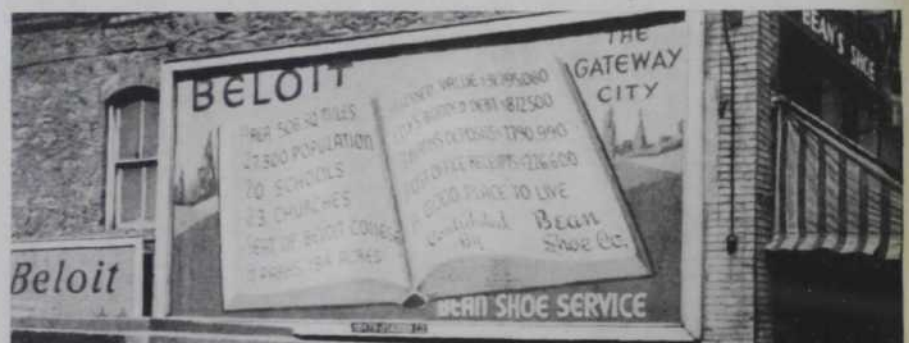 BELOIT
THE
GATEWAY
CITY
AREA 508.30 MILES
27,300 POPULATION
20 SCHOOLS
23 CHURCHES
SEAT OF BELOIT COLLEGE
PARKS 194 ACRES
VALUE
CITY'S BONDED DEBT $872,500
DEPOSITS
POST OFFICE RECEIPTS $226,600
A GOOD PLACE TO LIVE
Contributed
By
Bean
Shoe Co.
BEAN SHOE SERVICE
Beloit
BEAN'S SHOE